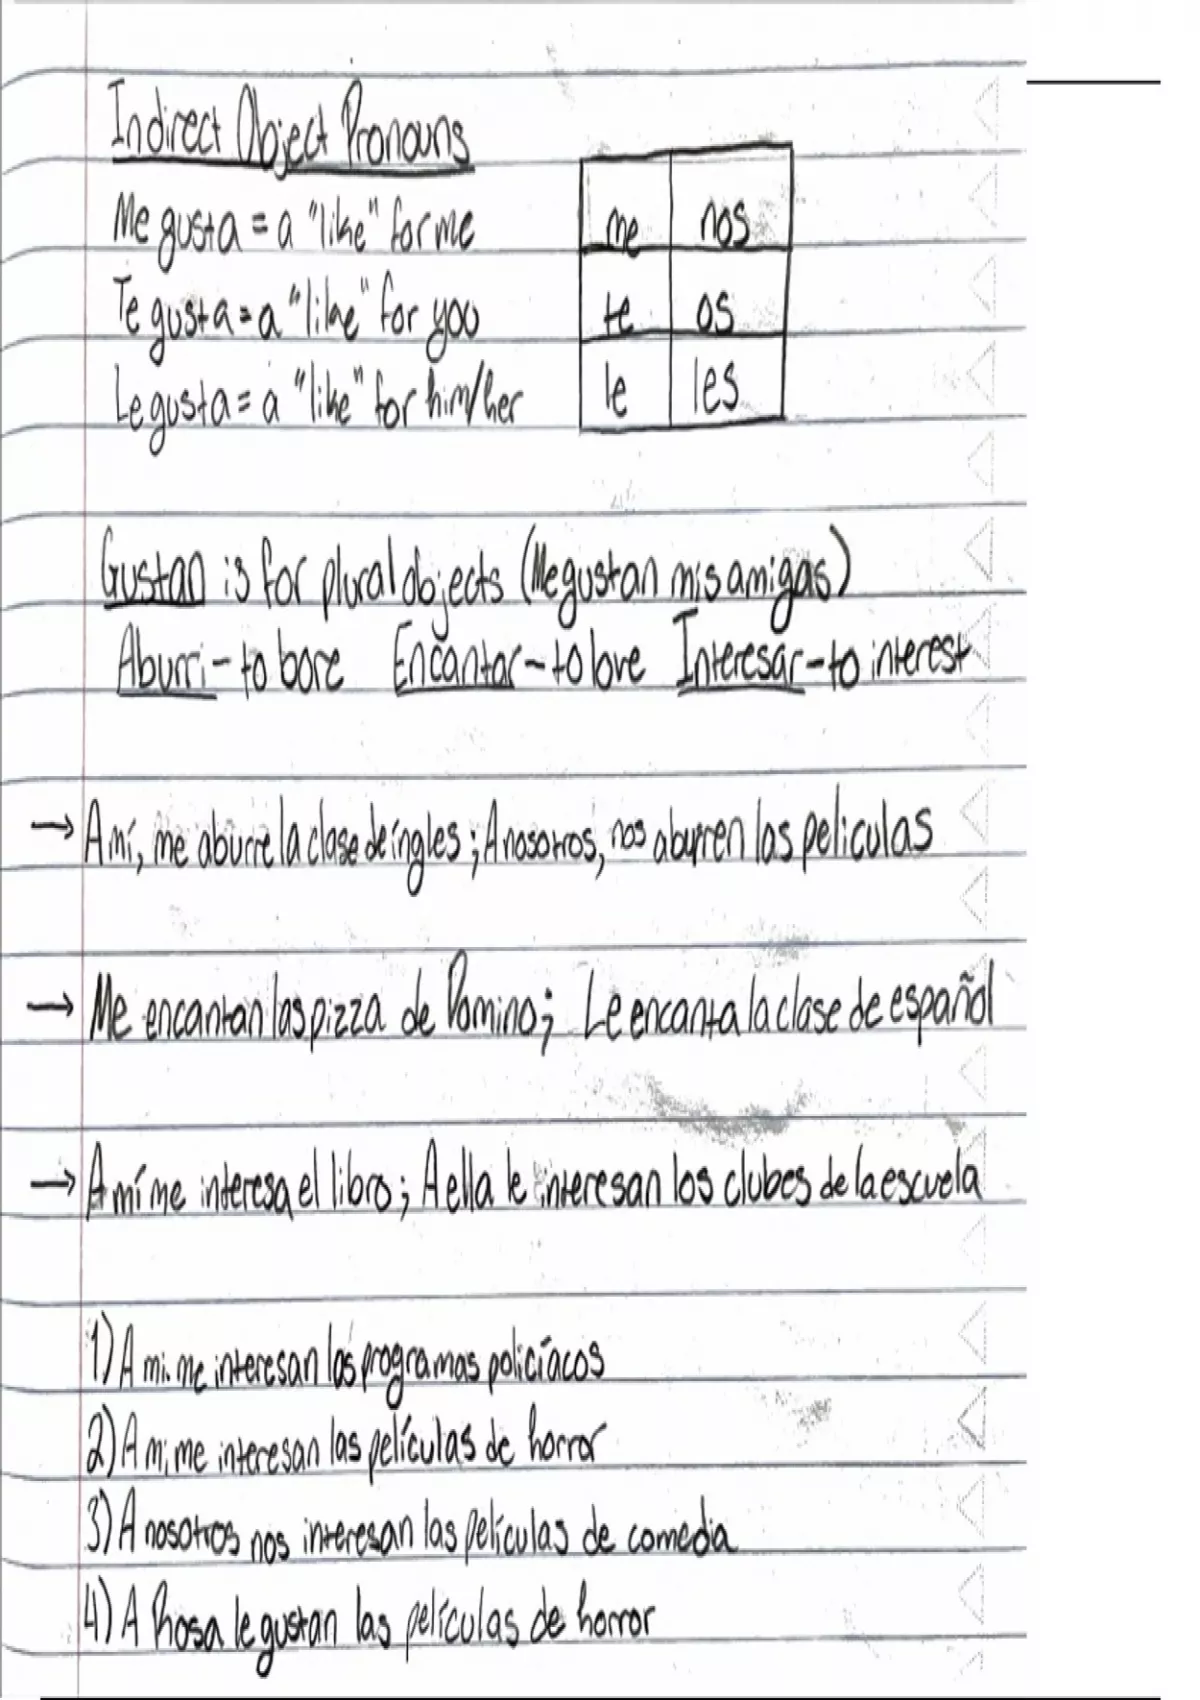 Indirect Object Pronouns
Me gusta = a "like" for me
Te gusta = a "like" for you
Le gusta = a "like" for him/her
me nos
te os
le les
Gustan is for plural objects (Me gustan mis amigas)
Aburri - to bore Encantar - to love Interesar - to interest
→ A mí, me aburre la clase de íngles; A nosotros, nos aburren las peliculas
→ Me encantan las pizza de Domino; Le encanta la clase de español
→ A mí me interesa el libro; A ella le interesan los clubes de la escuela
1) A mi me interesan los programas policíacos
2) A mi me interesan las películas de horror
3) A nosotros nos interesan las películas de comedia
4) A Rosa le gustan las películas de horror